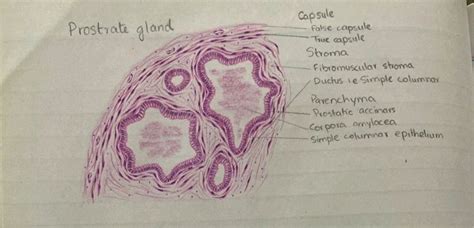 Prostrate gland
Capsule
False capsule
True capsule
Stroma
Fibromuscular stroma
Ductus i.e Simple columnar
Parenchyma
Prostatic accinars
Corpora amylacea
Simple columnar epithelium